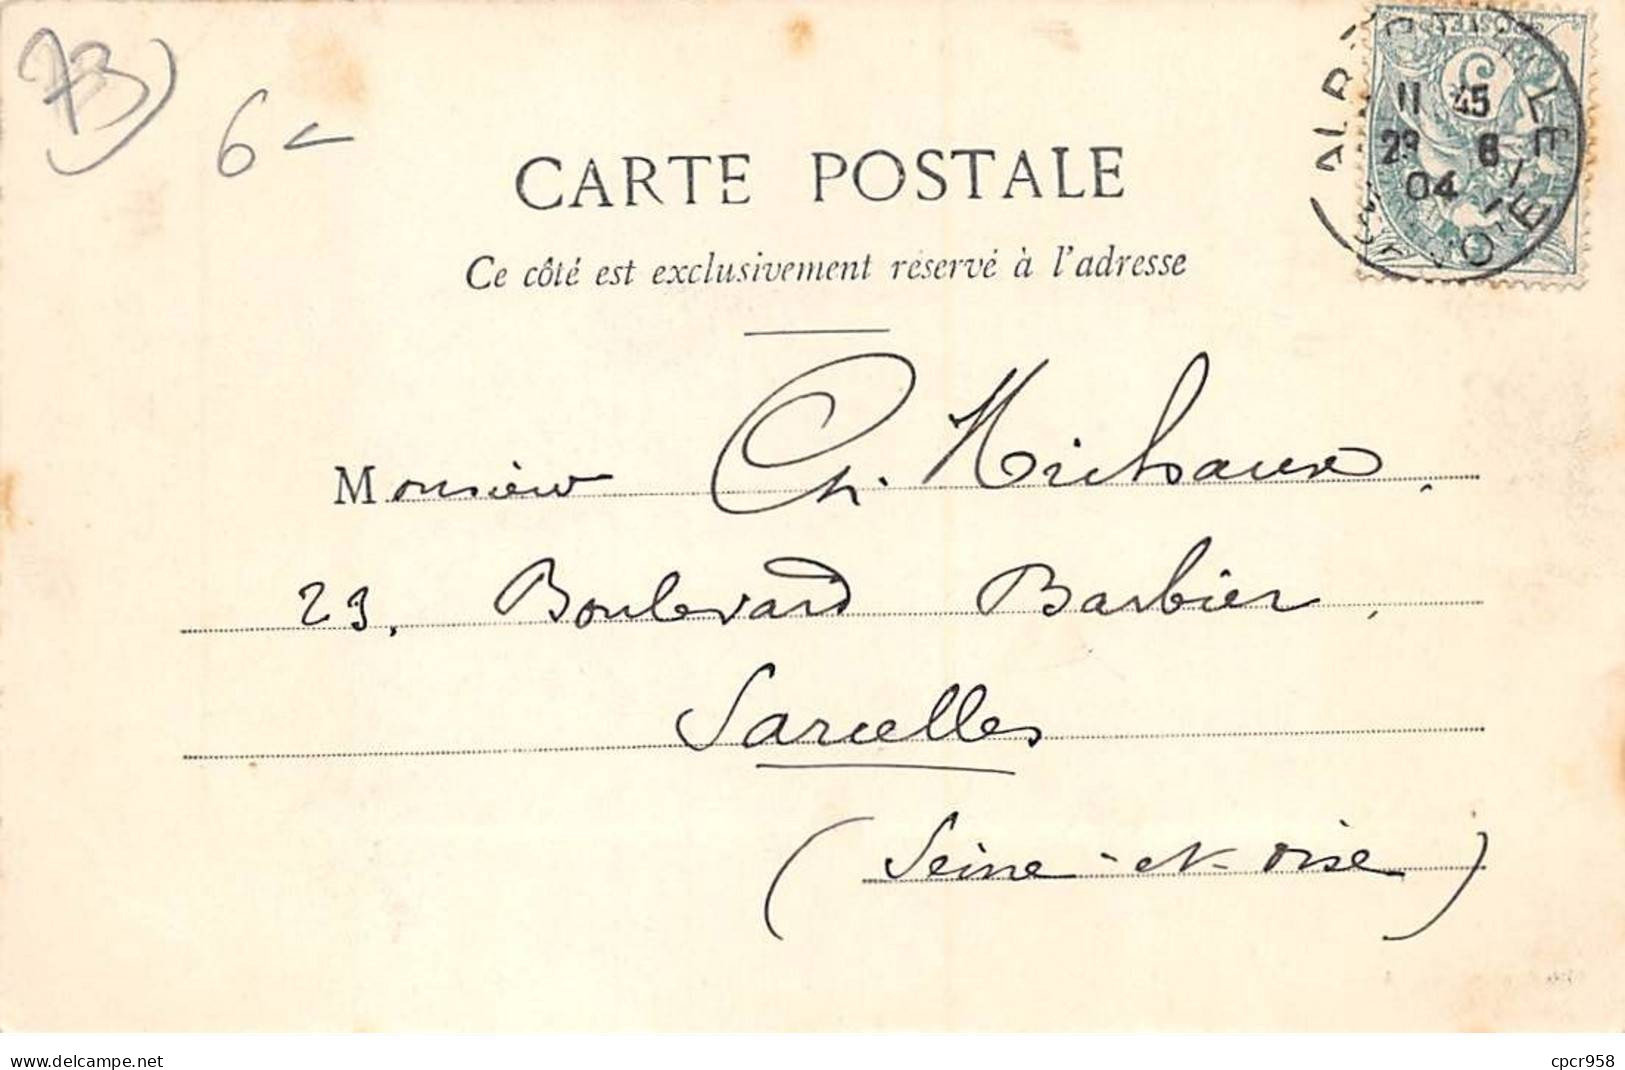 73
6
CARTE POSTALE
Ce côté est exclusivement réservé à l'adresse
11 45
29 8
04
SAVOIE
Monsieur Ch. Michaux.
23, Boulevard Barbier,
Sarcelles
(Seine-et-Oise)
delcampe.net
cpcr958